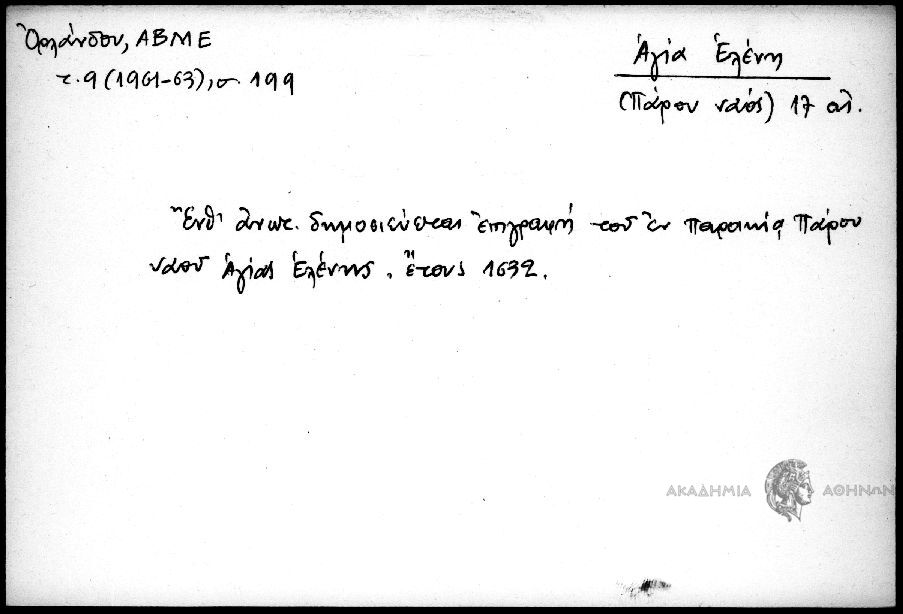 Ὀρλάνδου, ΑΒΜΕ
τ. 9 (1961-63), σ. 199
Ἁγία Ἑλένη
(Πάρου ναός) 17 αἰ.
Ἔνθ' ἄνωτ. δημοσιεύεται ἐπιγραφή τοῦ ἐν Παροικίᾳ Πάρου
ναοῦ Ἁγίας Ἑλένης, ἔτους 1632.
ΑΚΑΔΗΜΙΑ ΑΘΗΝΩΝ